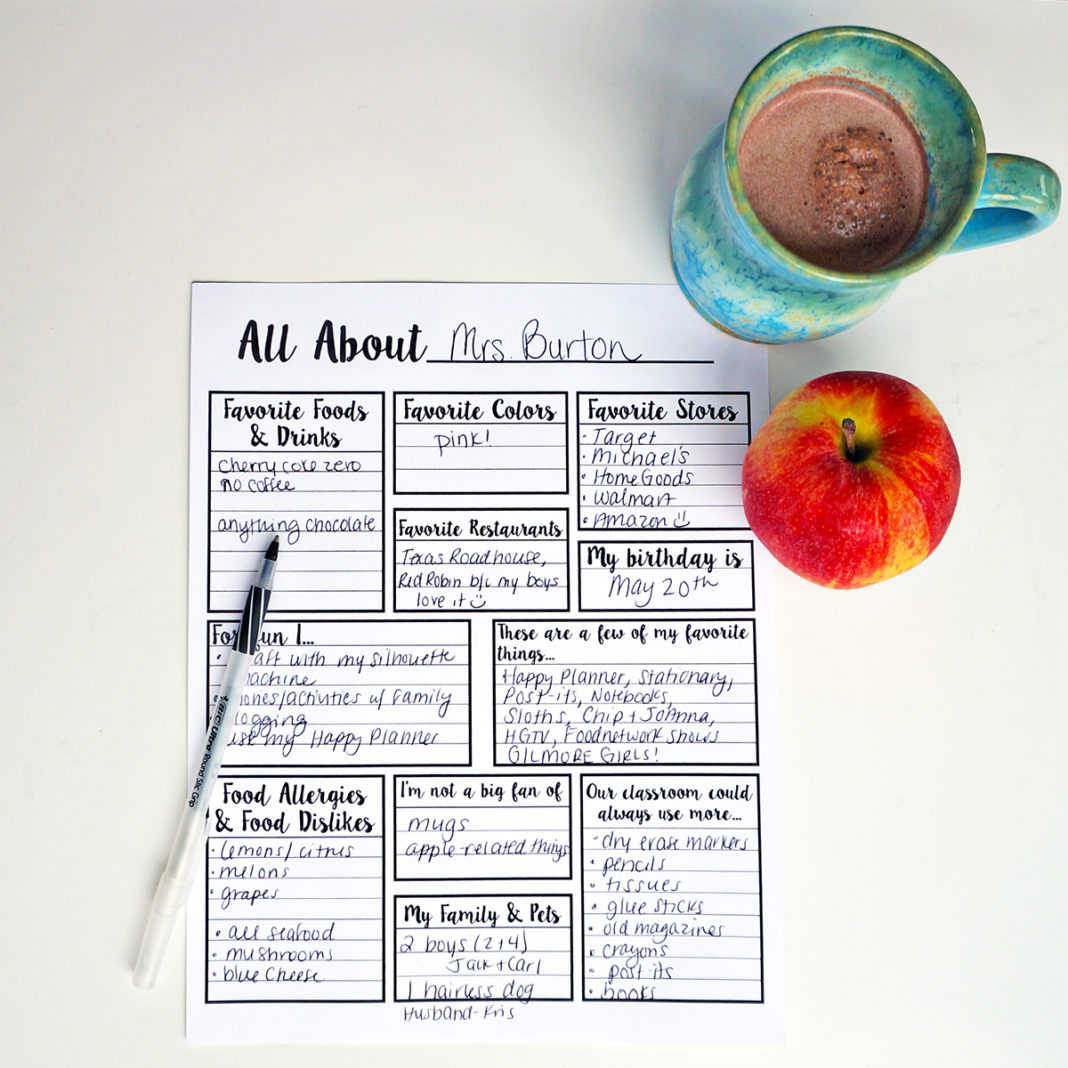 All About Mrs. Burton
Favorite Foods
& Drinks
cherry coke zero
no coffee
anything chocolate
Favorite Colors
pink!
Favorite Stores
• Target
• Michael's
• HomeGoods
• Walmart
• Amazon
Favorite Restaurants
Texas Roadhouse,
Red Robin b/c my boys
love it
My birthday is
May 20th
For fun I...
with my silhouette
w/ Family
use my Happy Planner
These are a few of my favorite
things...
Happy Planner, Stationary,
Post-its, Notebooks,
Sloths, Chip + JoAnna,
HGTV, Foodnetwork shows
GILMORE GIRLS!
Food Allergies
& Food Dislikes
• lemons/citrus
• melons
• grapes
• all seafood
• mushrooms
• blue cheese
I'm not a big fan of
mugs
apple-related things
My Family & Pets
2 boys (2+4)
Jack + Carl
1 hairless dog
Husband-Kris
Our classroom could
always use more...
• dry erase markers
• pencils
• tissues
• glue sticks
• old magazines
• crayons
• post-its
• books
BIC Ultra Round Stic Grip